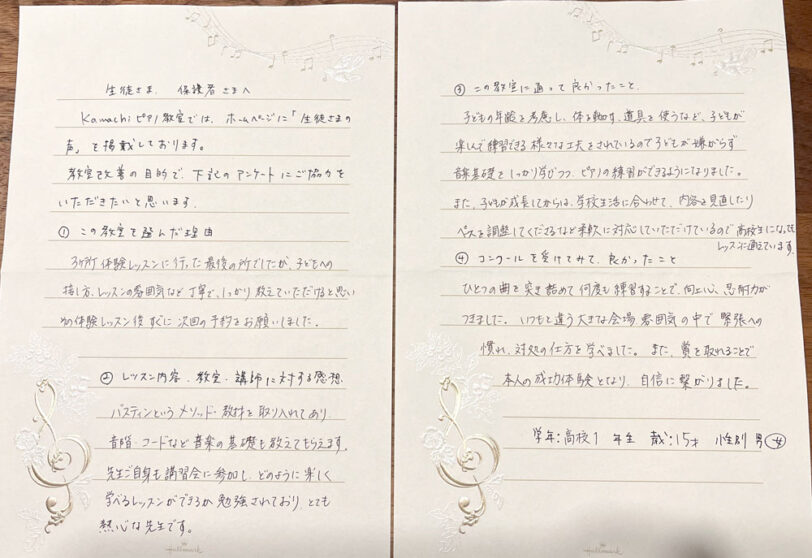 生徒さま、保護者さまへ
Kamachiピアノ教室では、ホームページに「生徒さまの
声」を掲載しております。
教室改善の目的で、下記のアンケートにご協力を
いただきたいと思います。
① この教室を選んだ理由
3ヶ所体験レッスンに行った最後の所でしたが、子どもへの
接し方、レッスンの雰囲気など丁寧で、しっかり教えていただけると思い
体験レッスン後すぐに次回の予約をお願いしました。
② レッスン内容、教室、講師に対する感想
バスティンというメソッド・教材を取り入れており
音階、コードなど音楽の基礎も教えてもらえます。
先生ご自身も講習会に参加し、どのように楽しく
学べるレッスンができるか勉強されており、とても
熱心な先生です。
Hallmark
③ この教室に通って良かったこと
子どもの年齢を考慮し、体を動かす、道具を使うなど、子どもが
楽しんで練習できる様々な工夫をされているので子どもが嫌がらず
音楽基礎をしっかり学びつつ、ピアノの練習ができるようになりました。
また、子どもが成長してからは、学校生活に合わせて、内容を見直したり
ペースを調整してくださるなど柔軟に対応していただけているので高校生になっても
レッスンに通えています。
④ コンクールを受けてみて、良かったこと
ひとつの曲を突き詰めて何度も練習することで、向上心、忍耐力が
つきました。いつもと違う大きな会場、雰囲気の中で緊張への
慣れ、対処の仕方を学べました。また、賞を取れることで
本人の成功体験となり、自信に繋がりました。
学年:高校1年生 歳:15才 性別 男・女
Hallmark